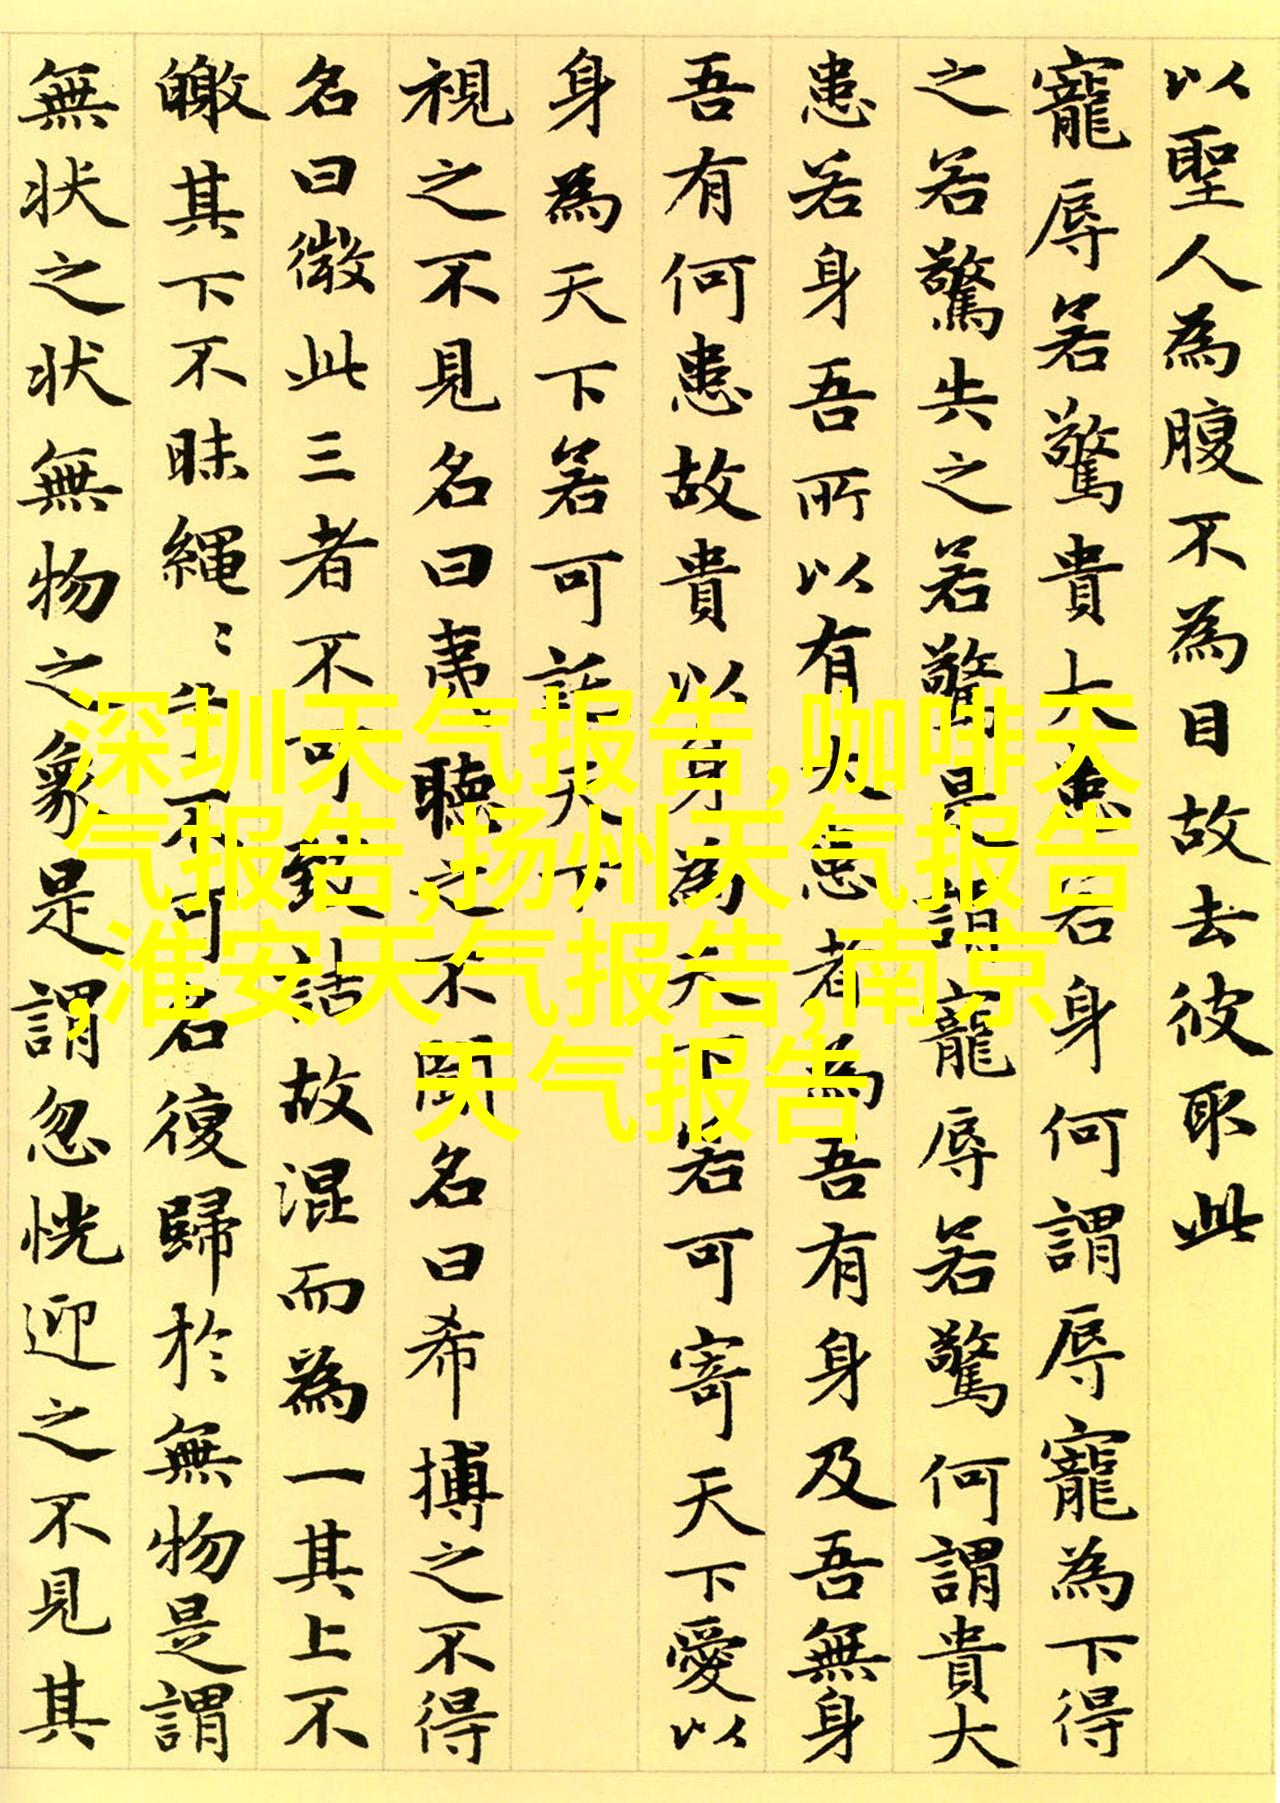 以聖人為腹不為目故去彼取此
寵辱若驚貴大患若身何謂辱寵為下得
之若驚失之若驚是謂寵辱若驚何謂貴大
患若身吾所以有大患者為吾有身及吾無身
吾有何患故貴以身為天下若可寄天下愛以
身為天下若可託天下
視之不見名曰夷聽之不聞名曰希搏之不得
名曰微此三者不可致詰故混而為一其上不
皦其下不昧繩〻兮不可名復歸於無物是謂
無状之状無物之象是謂忽恍迎之不見其
深圳天气报告,咖啡天
气报告,扬州天气报告
,淮安天气报告,南京
天气报告